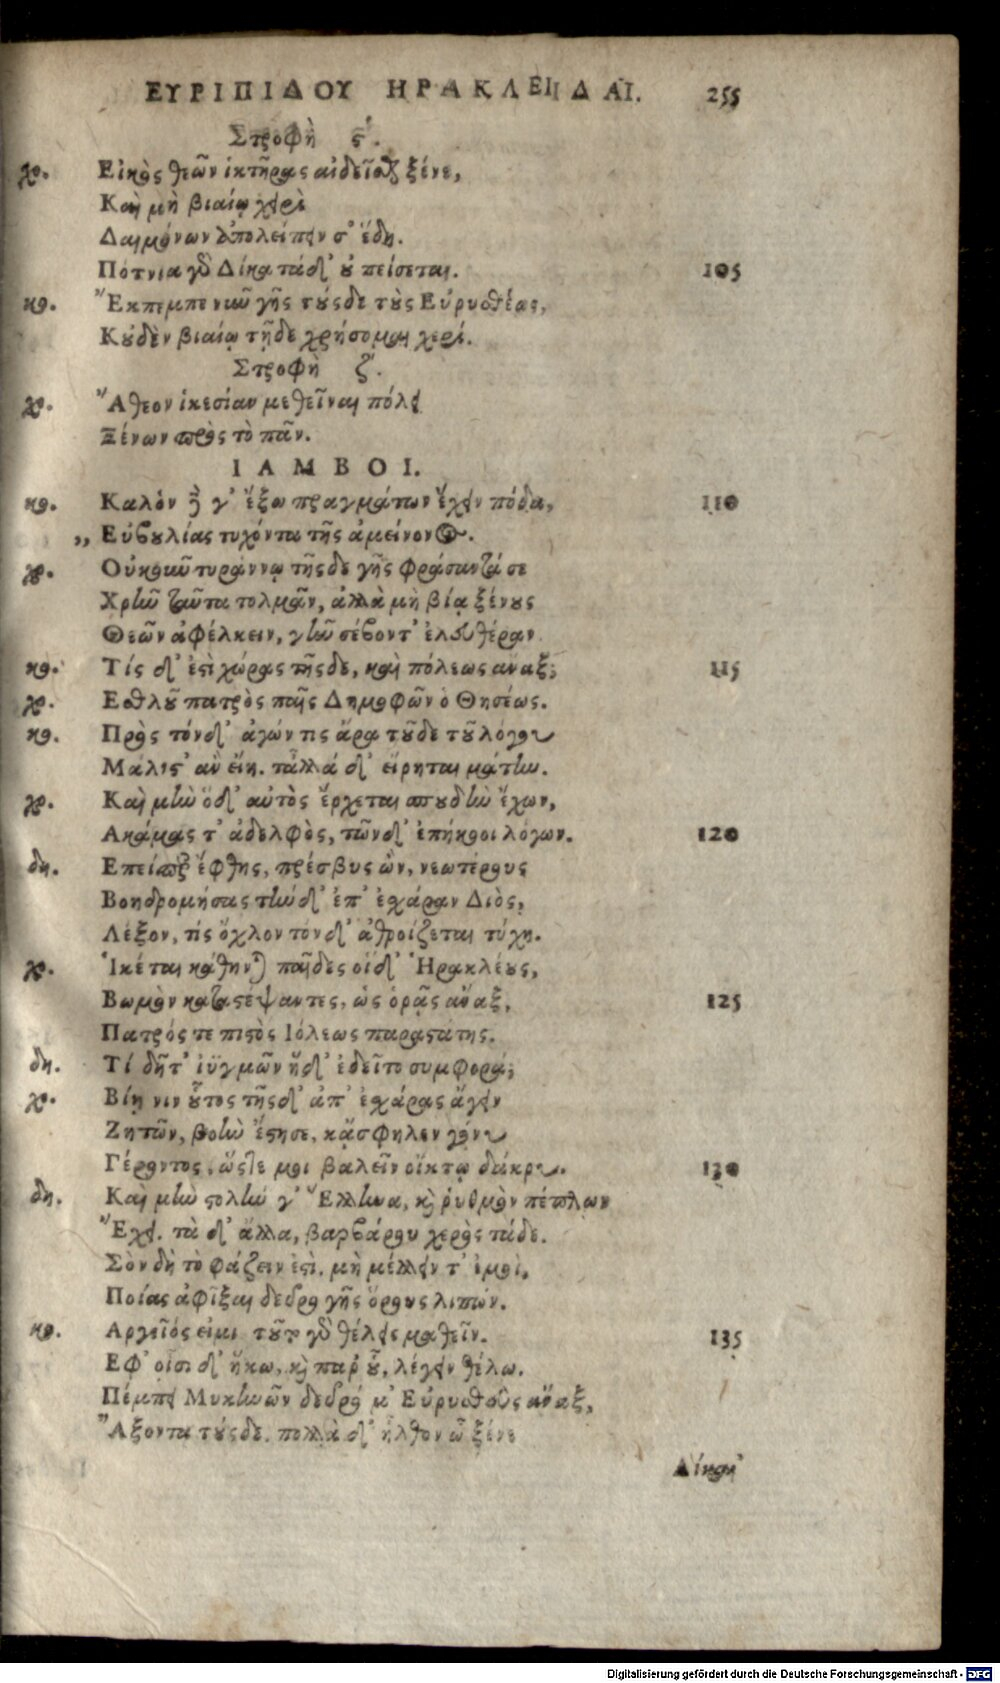 ΕΥΡΙΠΙΔΟΥ ΗΡΑΚΛΕΙΔΑΙ. 255
Στροφὴ ϛ΄.
χο. Εἰκὸς θεῶν ἱκτῆρας αἰδεῖσθαι ξένε,
Καὶ μὴ βιαίῳ χειρὶ
Δαιμόνων ἀπολείπειν σ' ἕδη.
Πότνια γὰρ Δίκα τάδ' οὐ πείσεται. 105
κο. Ἔκπεμπε νῦν γῆς τούσδε τοὺς Εὐρυσθέως,
Κοὐδὲν βιαίῳ τῇδε χρήσομαι χερί.
Στροφὴ ζ΄.
χο. Ἄθεον ἱκεσίαν μεθεῖναι πόλει
Ξένων πρὸς τὸ πᾶν.
ΙΑΜΒΟΙ.
κο. Καλὸν δέ γ' ἔξω πραγμάτων ἔχειν πόδα, 110
„ Εὐβουλίας τυχόντα τῆς ἀμείνονος.
χο. Οὐκοῦν τυράννῳ τῆσδε γῆς φράσαντά σε
Χρῆν ταῦτα τολμᾶν, ἀλλὰ μὴ βίᾳ ξένους
Θεῶν ἀφέλκειν, γῆν σέβοντ' ἐλευθέραν
κο. Τίς δ' ἐστὶ χώρας τῆσδε, καὶ πόλεως ἄναξ; 115
χο. Εσθλοῦ πατρὸς παῖς Δημοφῶν ὁ Θησέως.
κο. Πρὸς τόνδ' ἀγών τις ἄρα τοῦδε τοῦ λόγου
Μάλιστ' ἂν εἴη. τἄλλα δ' εἴρηται μάτην.
χο. Καὶ μὴν ὅδ' αὐτὸς ἔρχεται σπουδὴν ἔχων,
Ακάμας τ' ἀδελφὸς, τῶνδ' ἐπήκοοι λόγων. 120
δη. Επείπερ ἔφθης, πρέσβυς ὢν, νεωτέρους
Βοηδρομήσας τήνδ' ἐπ' ἐχάραν Διὸς,
Λέξον, τίς ὄχλον τόνδ' ἀθροίζεται τύχη.
χο. Ἱκέται κάθηνται παῖδες οἵδ' Ἡρακλέους,
Βωμὸν καταστέψαντες, ὡς ὁρᾷς ἄναξ, 125
Πατρός τε πιστὸς Ιόλεως παραστάτης.
δη. Τί δῆτ' ἰϋγμῶν ἥδ' ἐδεῖτο συμφορά;
χο. Βίῃ νιν οὗτος τῆσδ' ἀπ' ἐχάρας ἄγειν
Ζητῶν, βοὴν ἔστησε, κᾄσφηλεν γόνυ
Γέροντος, ὥστε μοι βαλεῖν οἴκτῳ δάκρυ. 130
δη. Καὶ μὴν στολήν γ' Ἕλληνα, καὶ ῥυθμὸν πέπλων
Ἔχει. τὰ δ' ἄλλα, βαρβάρου χερὸς τάδε.
Σὸν δὴ τὸ φάζειν ἐστὶ, μὴ μέλλειν τ' ἐμοὶ,
Ποίας ἀφῖξαι δεῦρο γῆς ὅρους λιπών.
κο. Αργεῖός εἰμι τοῦτο γὰρ θέλεις μαθεῖν. 135
Εφ' οἷσι δ' ἥκω, καὶ παρ' οὗ, λέγειν θέλω.
Πέμπει Μυκηνῶν δεῦρό μ' Εὐρυσθεὺς ἄναξ,
Ἄξοντα τούσδε. πολλὰ δ' ἦλθον ὦ ξένε
Δίκαι'
Digitalisierung gefördert durch die Deutsche Forschungsgemeinschaft - DFG